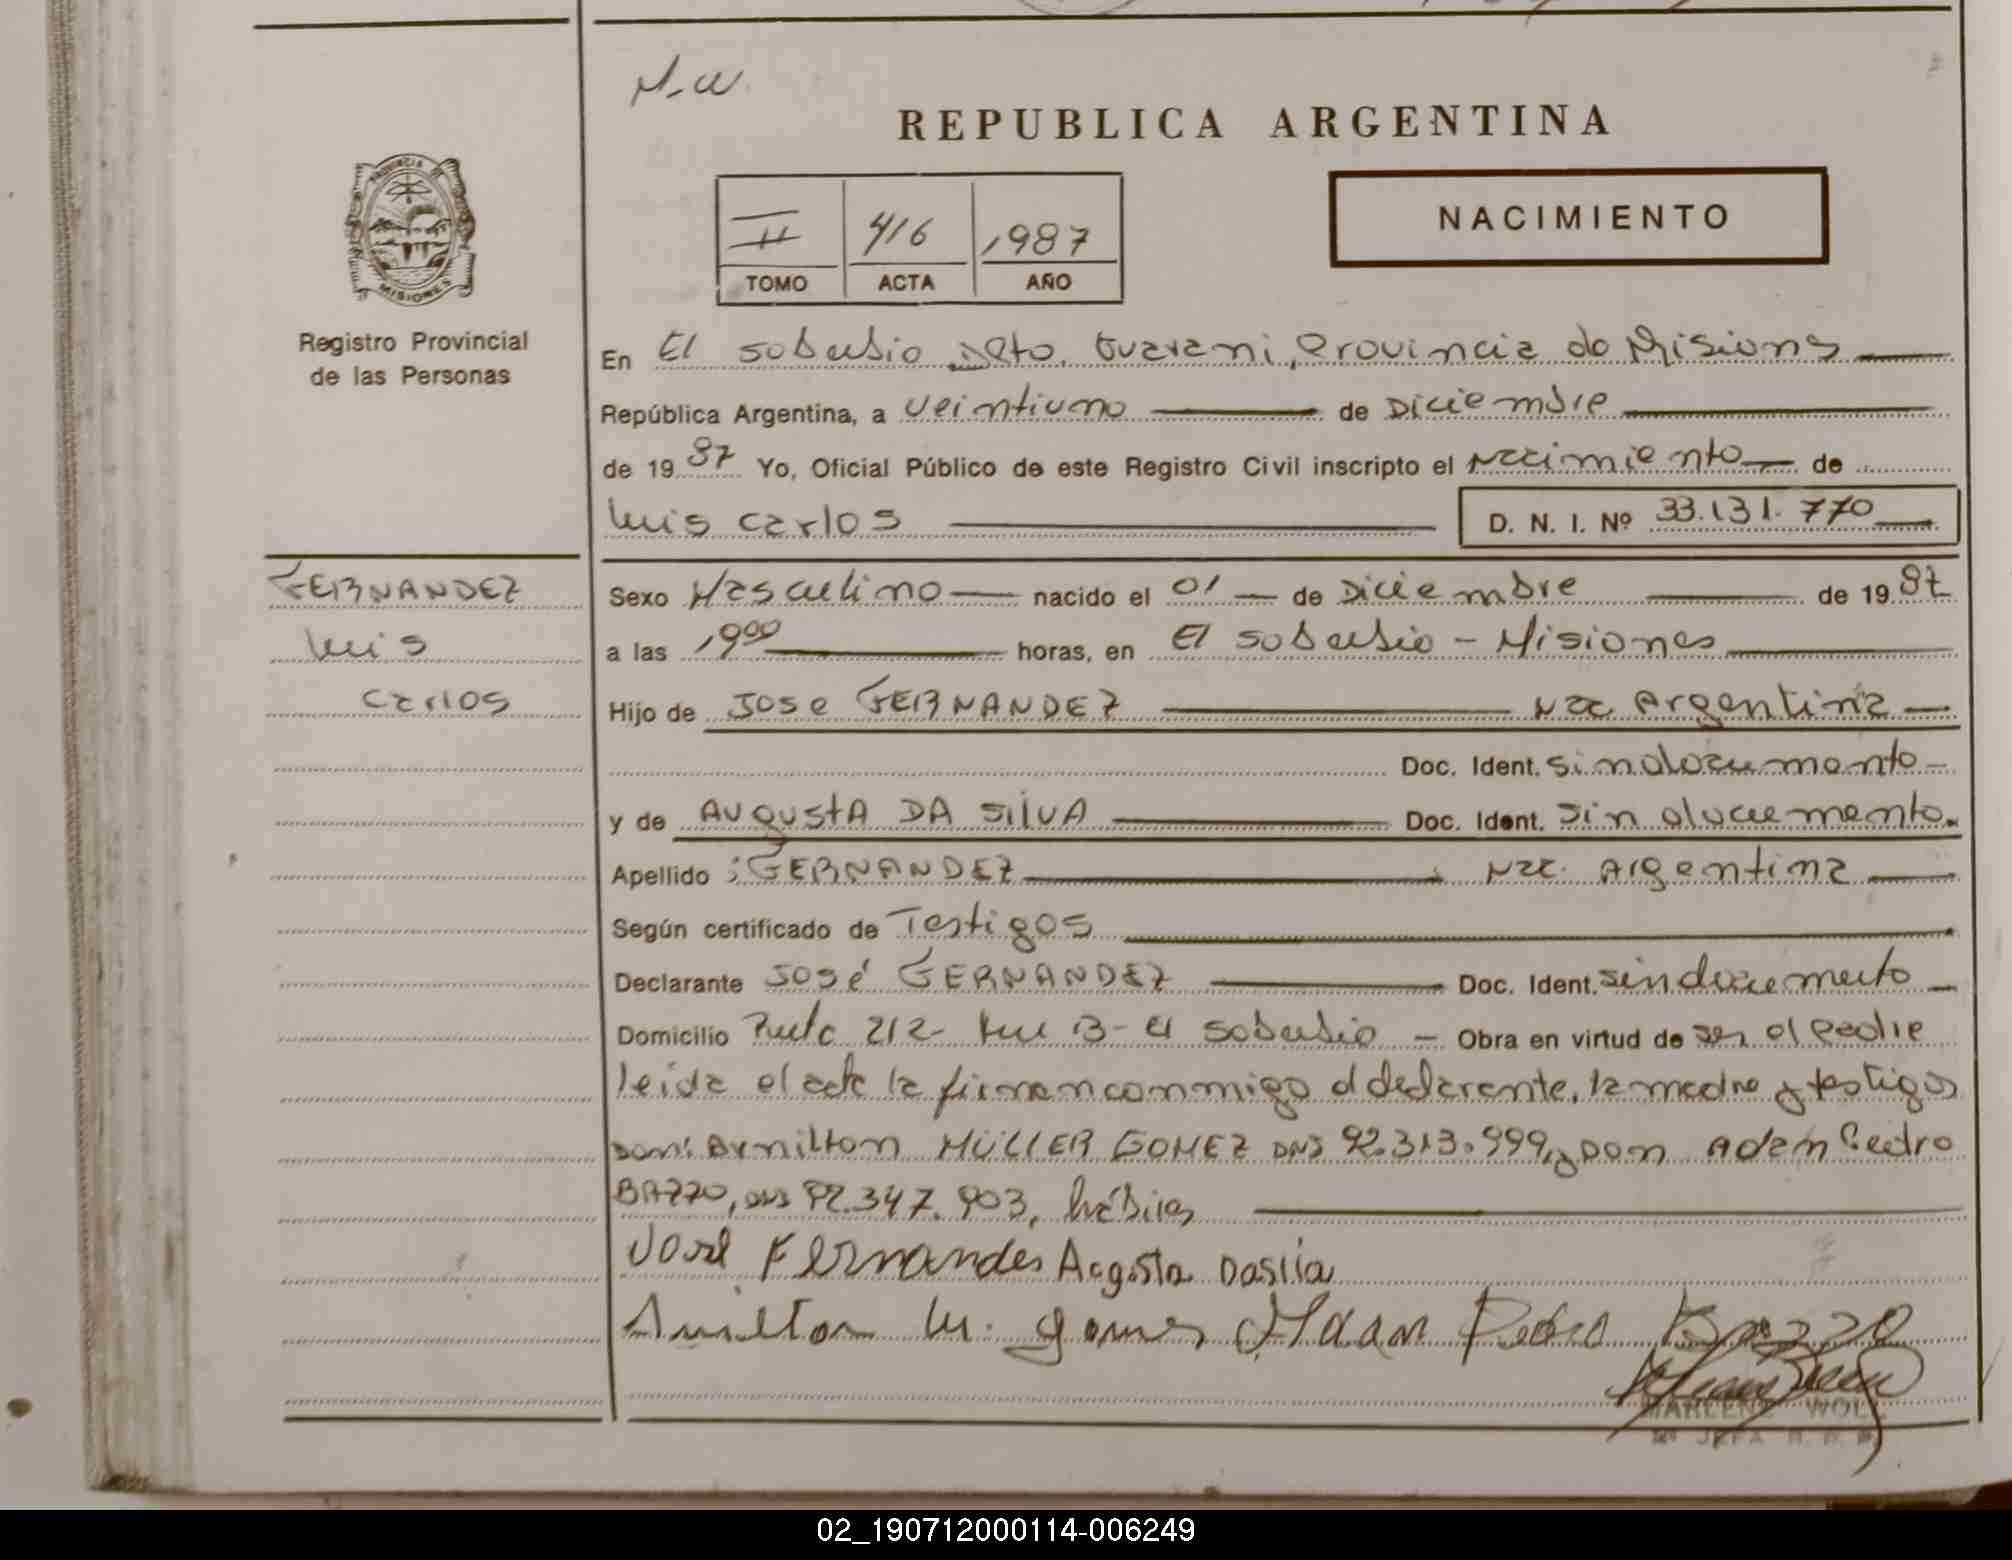 N-W
REPUBLICA ARGENTINA
NACIMIENTO
II 416 1987
TOMO ACTA AÑO
PROVINCIA DE
MISIONES
Registro Provincial
de las Personas
En El soberbio Dpto. Guarani, Provincia de Misiones
República Argentina, a veintiuno de Diciembre
de 1987 Yo, Oficial Público de este Registro Civil inscripto el Nacimiento de
Luis Carlos D. N. I. Nº 33.131.770
FERNANDEZ
Luis
Carlos
Sexo Masculino nacido el 01 de Diciembre de 1987
a las 19⁰⁰ horas, en El soberbio - Misiones
Hijo de Jose FERNANDEZ Nac Argentina
Doc. Ident. sin documento
y de AUGUSTA DA SILVA Doc. Ident. sin documento.
Apellido : FERNANDEZ Nac. Argentina
Según certificado de Testigos
Declarante José FERNANDEZ Doc. Ident. sin documento
Domicilio 212- 13- El soberbio - Obra en virtud de ser el Padre
leida el acta la firman conmigo el declarante, la madre y testigos
Don: Armilton MÜLLER GOMEZ DNI 92.313.999, y Don Adam Pedro
BAZZO, DNI 92.347.903, hábiles
José Fernandes Agosta Dasila
Amilton M. Gomes Adam Pedro Bazzo
MARLENE WOLL
JEFA R. P. P.
02_190712000114-006249